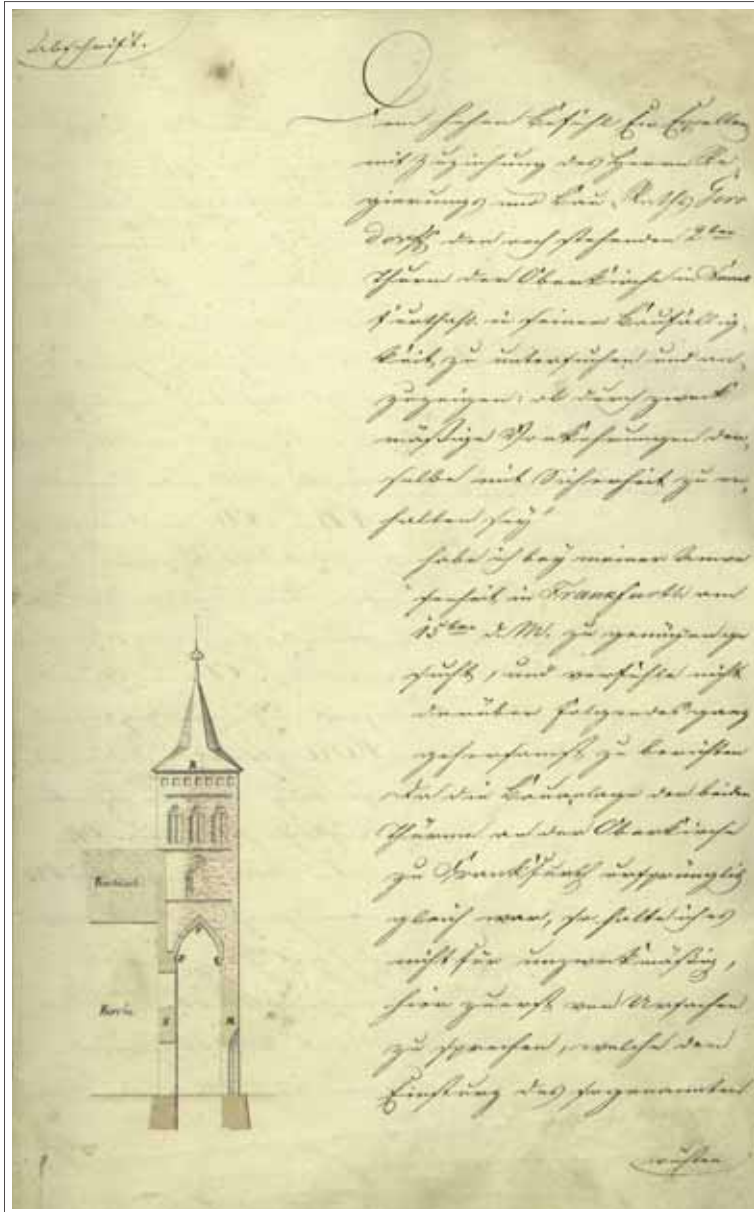 Abschrift.
Dem hohen Befehl Eur Excellen
mit Zuziehung des Herrn Re-
gierungs und Bau-Raths
den noch stehenden 2ten
Thurm der Oberkirche in Frank
furth in seiner Baufällig-
keit, zu untersuchen und an-
zuzeigen: ob durch zweck
mäßige Vorkehrungen der-
selbe mit Sicherheit zu er-
halten sey!
habe ich bey meiner Anwe
senheit in Frankfurth am
15ten d. M. zu genügen ge
sucht, und verfehle nicht
darüber Folgendes ganz
gehorsamst zu berichten
Da die Bauanlage der beiden
Thürme an der Oberkirche
zu Frankfurth ursprünglich
gleich war, so halte ich es
nicht für unzweckmäßig,
hier zuerst von Ursachen
zu sprechen, welche den
Einsturz des sogenannten
wüsten